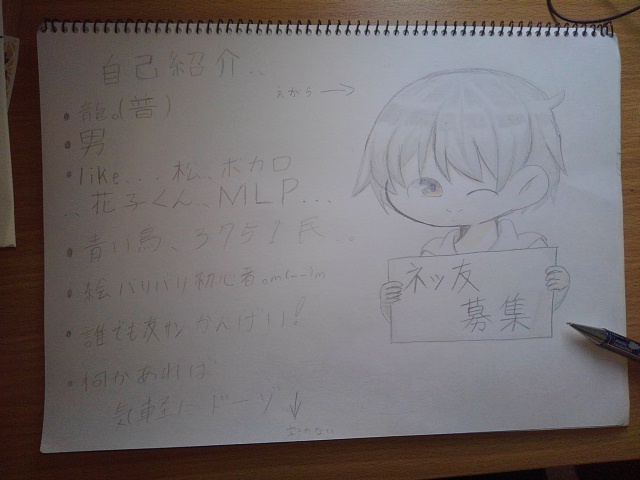 自己紹介..
えがら→
・龍。(普)
・男
・like... 松、ボカロ
、花子くん、、MLP...
・青い鳥、3751民...
・絵バリバリ初心者。m(_ _)m
・誰でも かんげい!
・何かあれば
気軽にドーゾ↓
ネッ友
募集